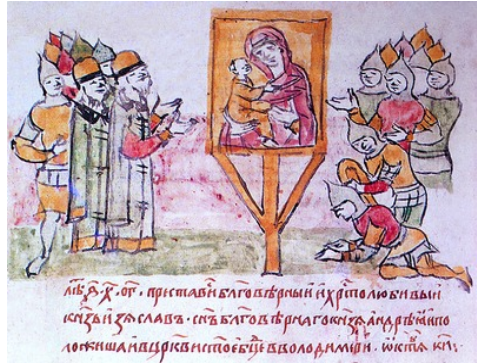 лѣ ҂ѕ҃ х҃ ог҃ · приставис̑ блг҃овѣрныи и хрⷭ҇толюбивыи
кн҃зь изѧславъ · сн҃ъ блг҃овѣрнаго кн҃зѧ андрѣѧ · ипо
ложиша и въ цр҃кви ст҃ое бц҃ѣ в володимѣри ·